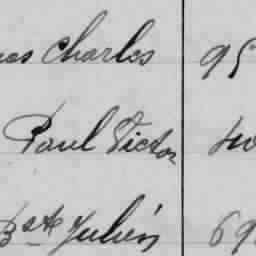 Charles 95
Paul Victor
Bte Julien 69